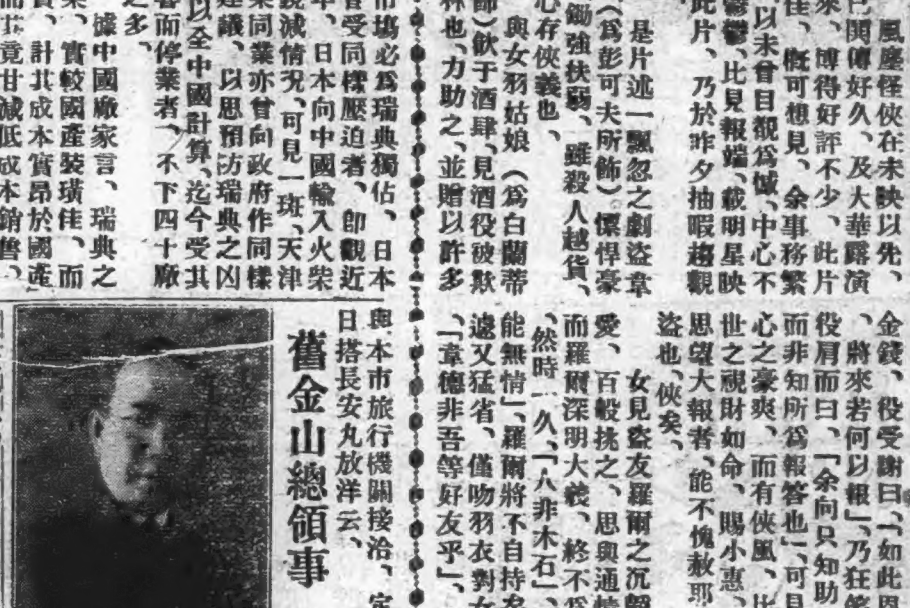 風塵怪俠在未映以先、
已閧傳好久、及大華露演
來、博得好評不少、此片
佳、慨可想見、余事務繁
以未曾目覩爲憾、中心不
鬱鬱、比見報端、載明星映
此片、乃於昨夕抽暇趨觀
是片述一飄忽之劇盜韋
(爲彭可夫所飾)。慓悍豪
鋤強扶弱、雖殺人越貨、
心存俠義也、
與女羽姑娘(爲白蘭蒂
飾)飲于酒肆、見酒役被欺
林也、力助之、並贈以許多
金錢、役受謝曰、「如此恩
、將來若何以報」、乃狂笑
役肩而曰、「余向只知助
而非知所爲報答也」、可見
心之豪爽、而有俠風、比
世之視財如命、賜小惠、
思望大報者、能不愧赦耶
盜也、俠矣、
女見盜友羅爾之沉毅
愛、百般挑之、思與通情
而羅爾深明大義、終不爲
、然時一久、「人非木石」、
能無情」、羅爾將不自持矣
遽又猛省、僅吻羽衣對女
、「韋德非吾等好友乎」、
市塲必爲瑞典獨佔、日本
曾受同樣壓迫者、卽觀近
年、日本向中國輸入火柴
銳減情况、可見一斑、天津
業同業亦曾向政府作同樣
建議、以思預防瑞典之凶
以全中國計算、迄今受其
響而停業者、不下四十廠
之多、
據中國廠家言、瑞典之
柴、實較國產裝璜佳、而
質、計其成本實昂於國產
而其竟甘減低成本銷售、
與本市旅行機關接洽、定
日搭長安丸放洋云、
舊金山總領事